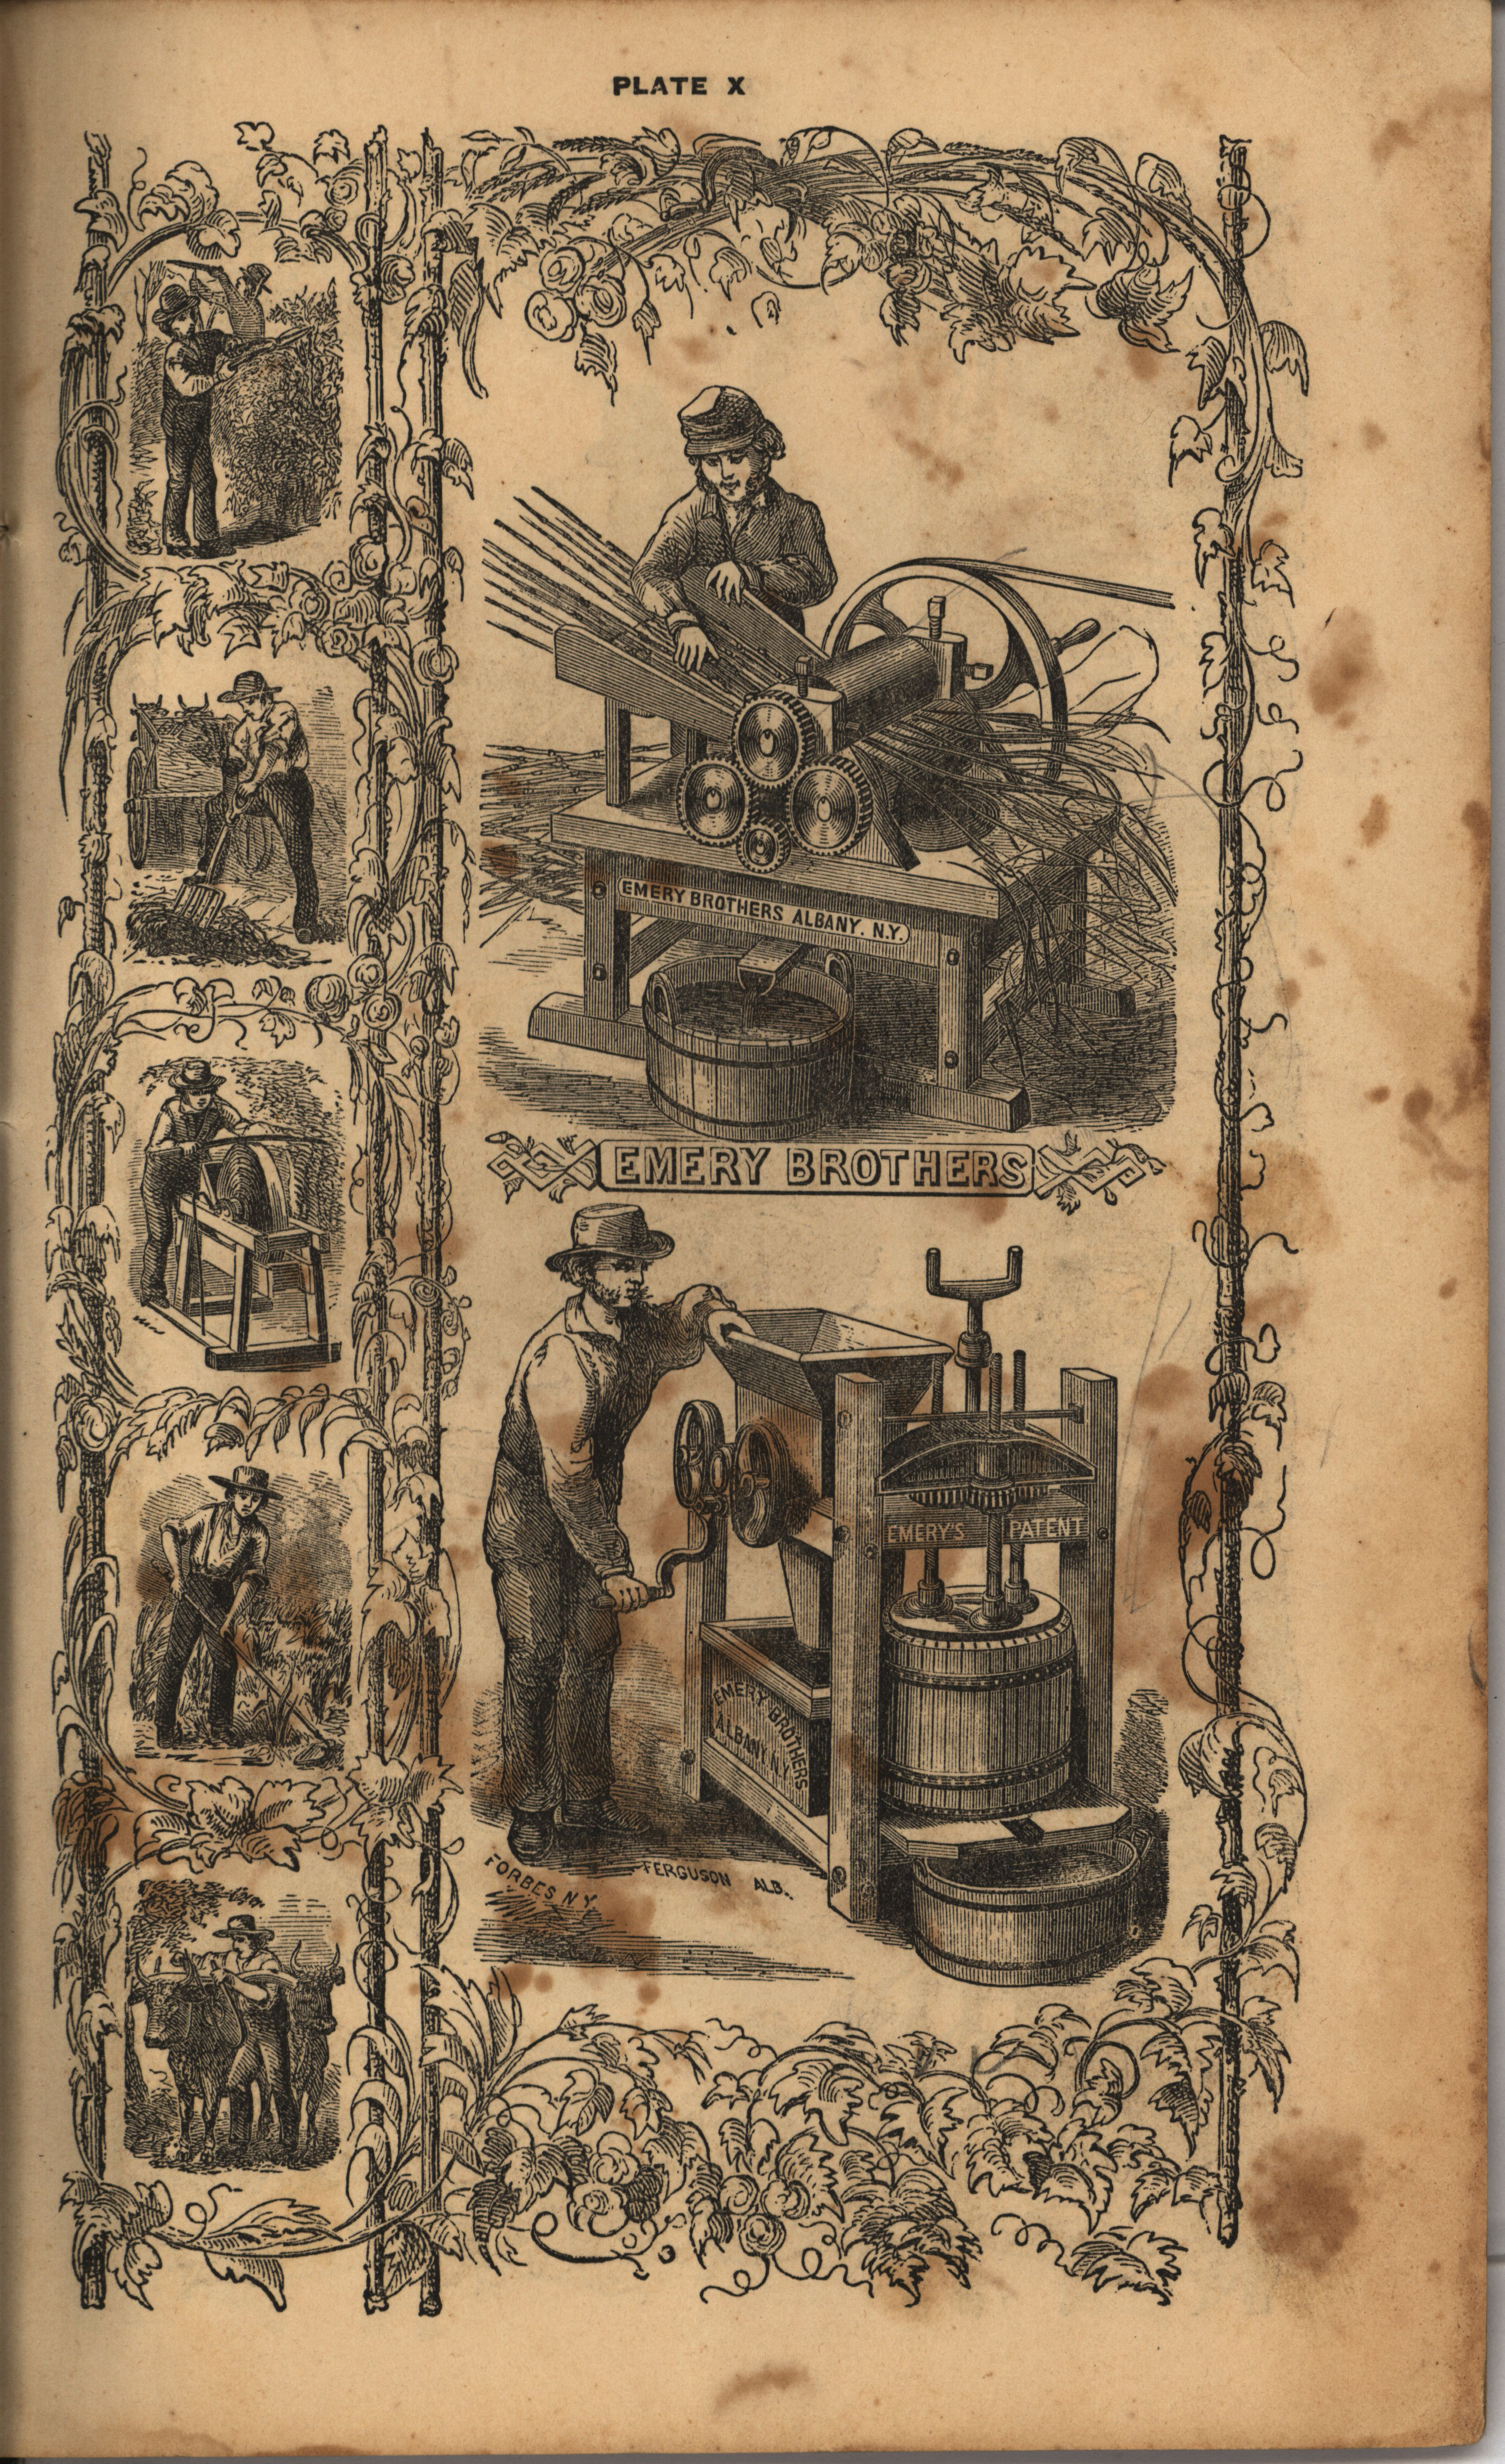 PLATE X
EMERY BROTHERS ALBANY. N.Y.
EMERY BROTHERS
EMERY'S PATENT
EMERY BROTHERS
ALBANY N.Y.
FORBES N Y
FERGUSON ALB.